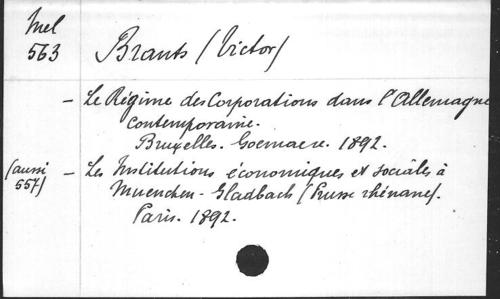 Mel
563
Brants (Victor)
- Le Régime des Corporations dans l'Allemagne
contemporaine.
Bruxelles. Goemaere. 1892.
(aussi
557)
- Les Institutions économiques et sociales à
Muenchen-Gladbach (Prusse rhénane).
Paris. 1892.